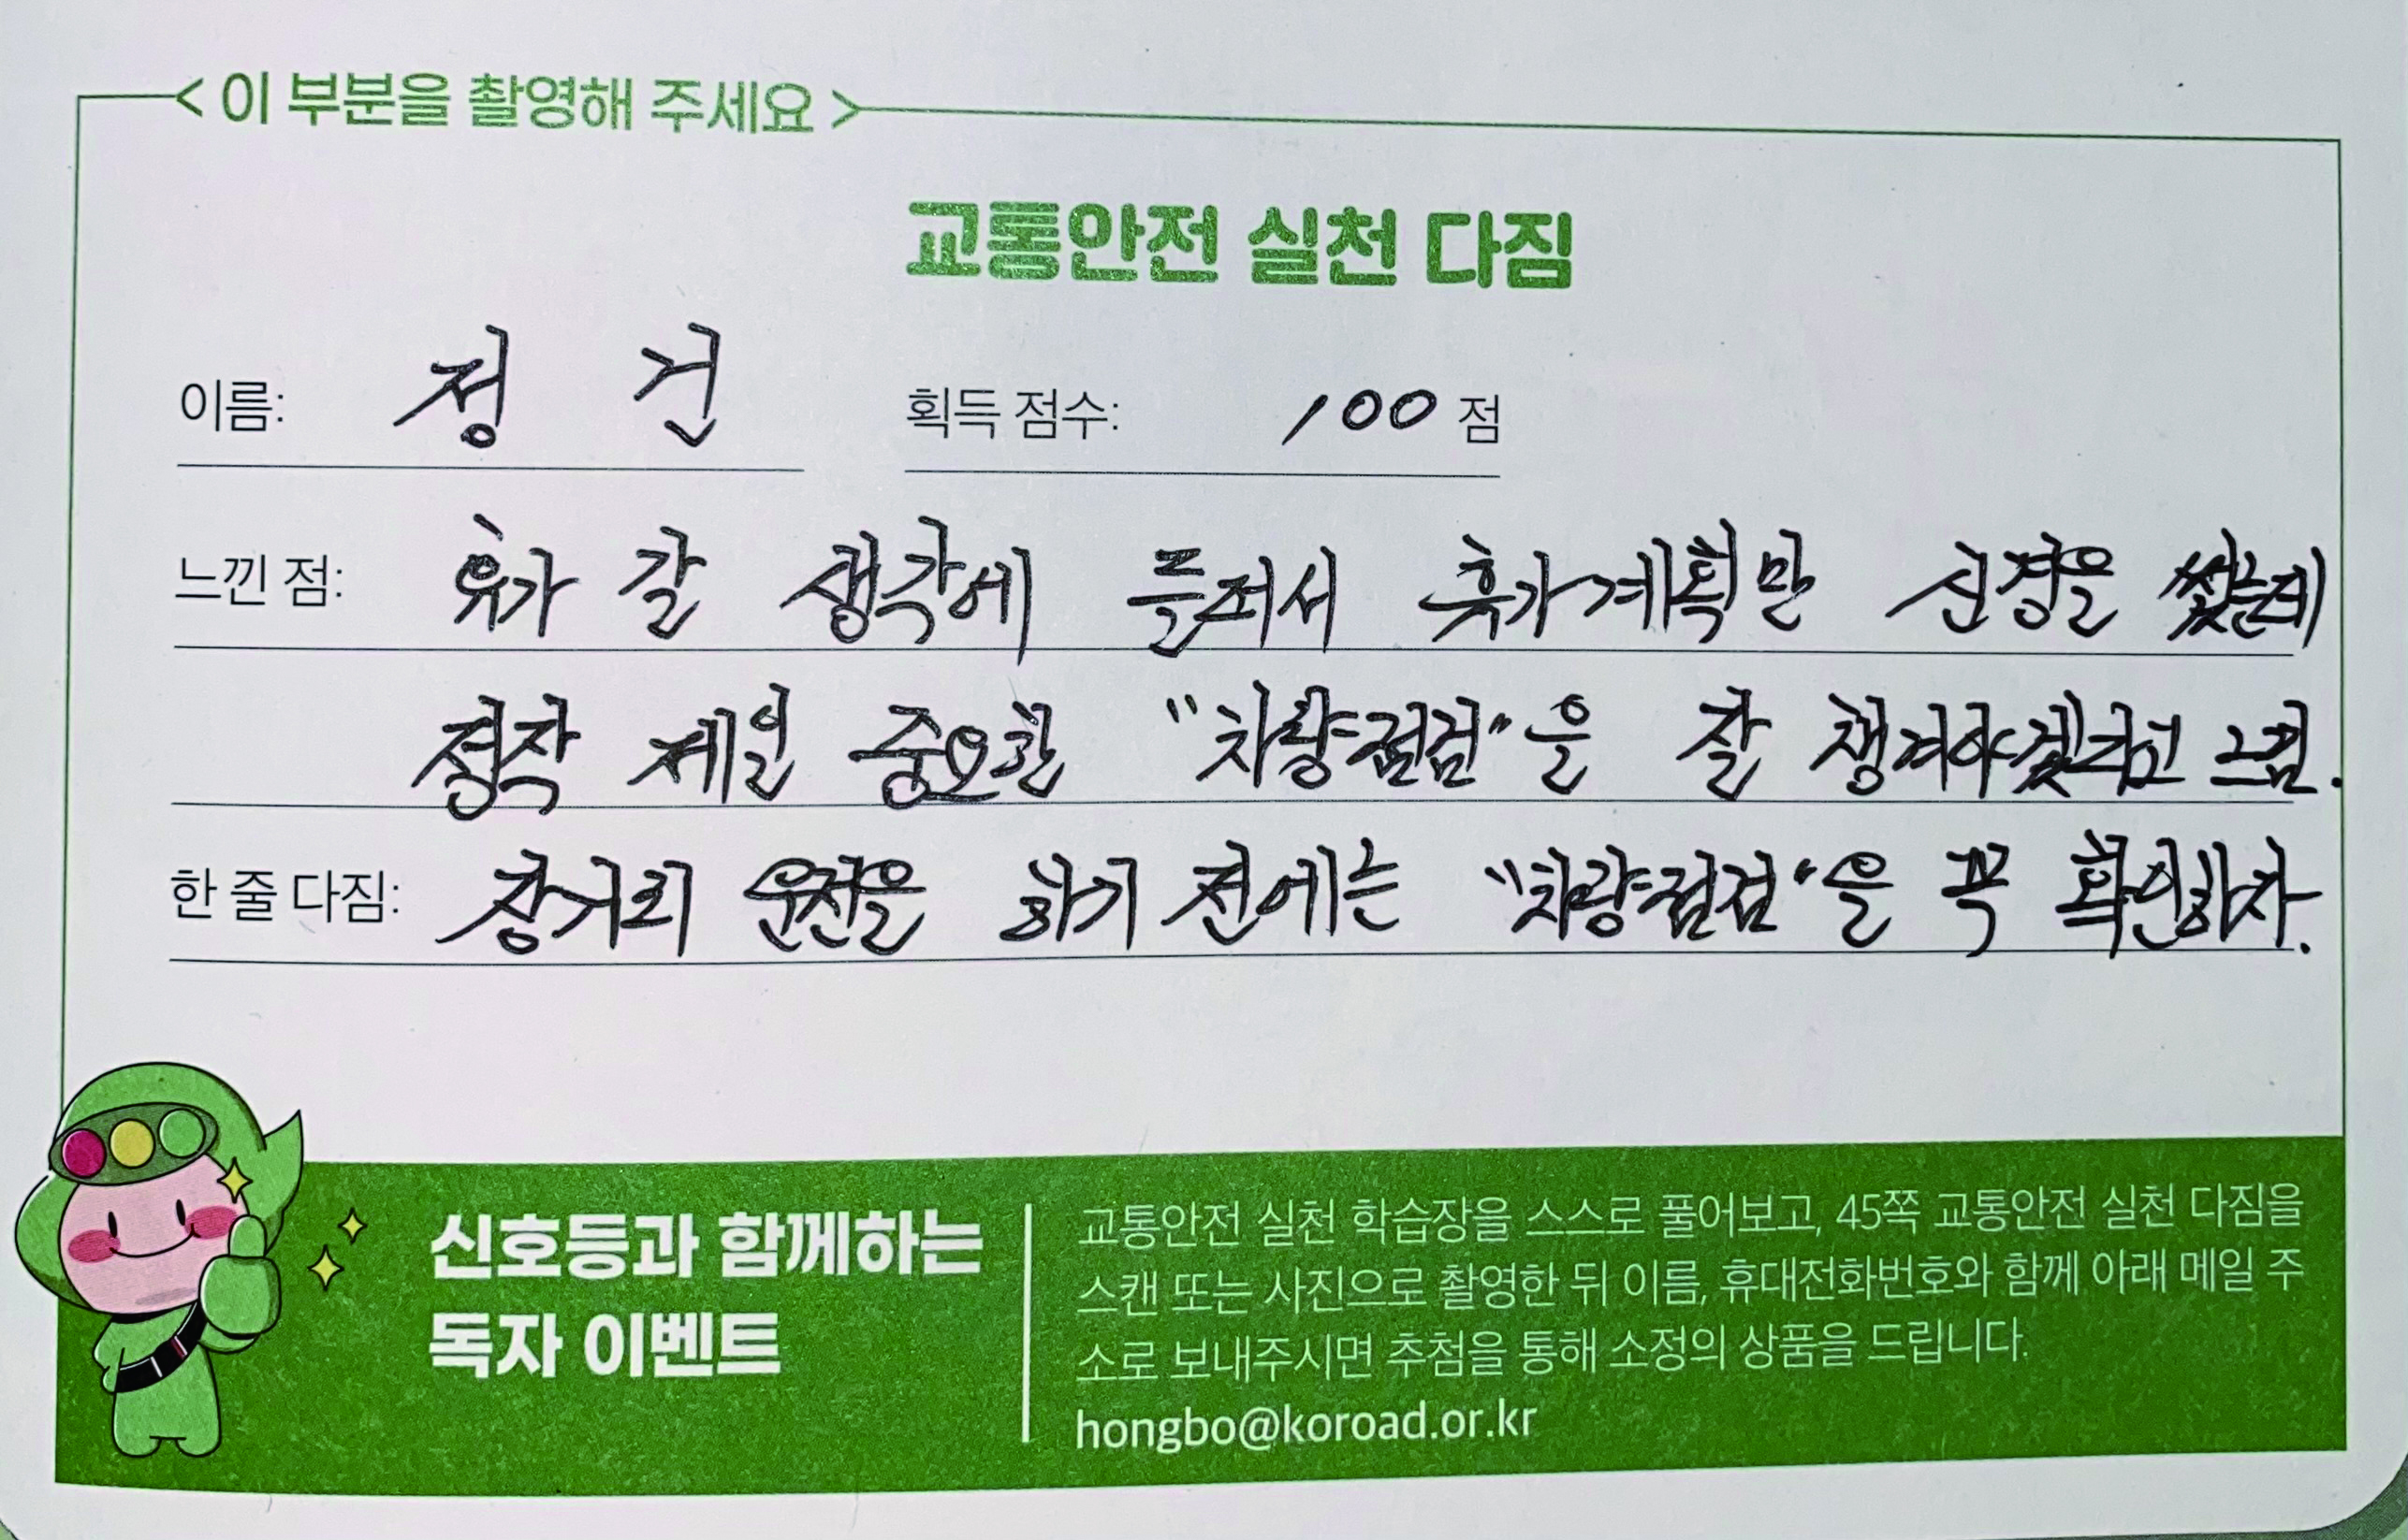 < 이 부분을 촬영해 주세요 >
교통안전 실천 다짐
이름: 정 건 획득 점수: 100 점
느낀 점: 휴가 갈 생각에 들떠서 휴가계획만 신경을 썼는데
정작 제일 중요한 "차량점검"을 잘 챙겨야겠다고 느낌.
한 줄 다짐: 장거리 운전을 하기 전에는 "차량점검"을 꼭 확인하자.
신호등과 함께하는
독자 이벤트
교통안전 실천 학습장을 스스로 풀어보고, 45쪽 교통안전 실천 다짐을
스캔 또는 사진으로 촬영한 뒤 이름, 휴대전화번호와 함께 아래 메일 주
소로 보내주시면 추첨을 통해 소정의 상품을 드립니다.
hongbo@koroad.or.kr